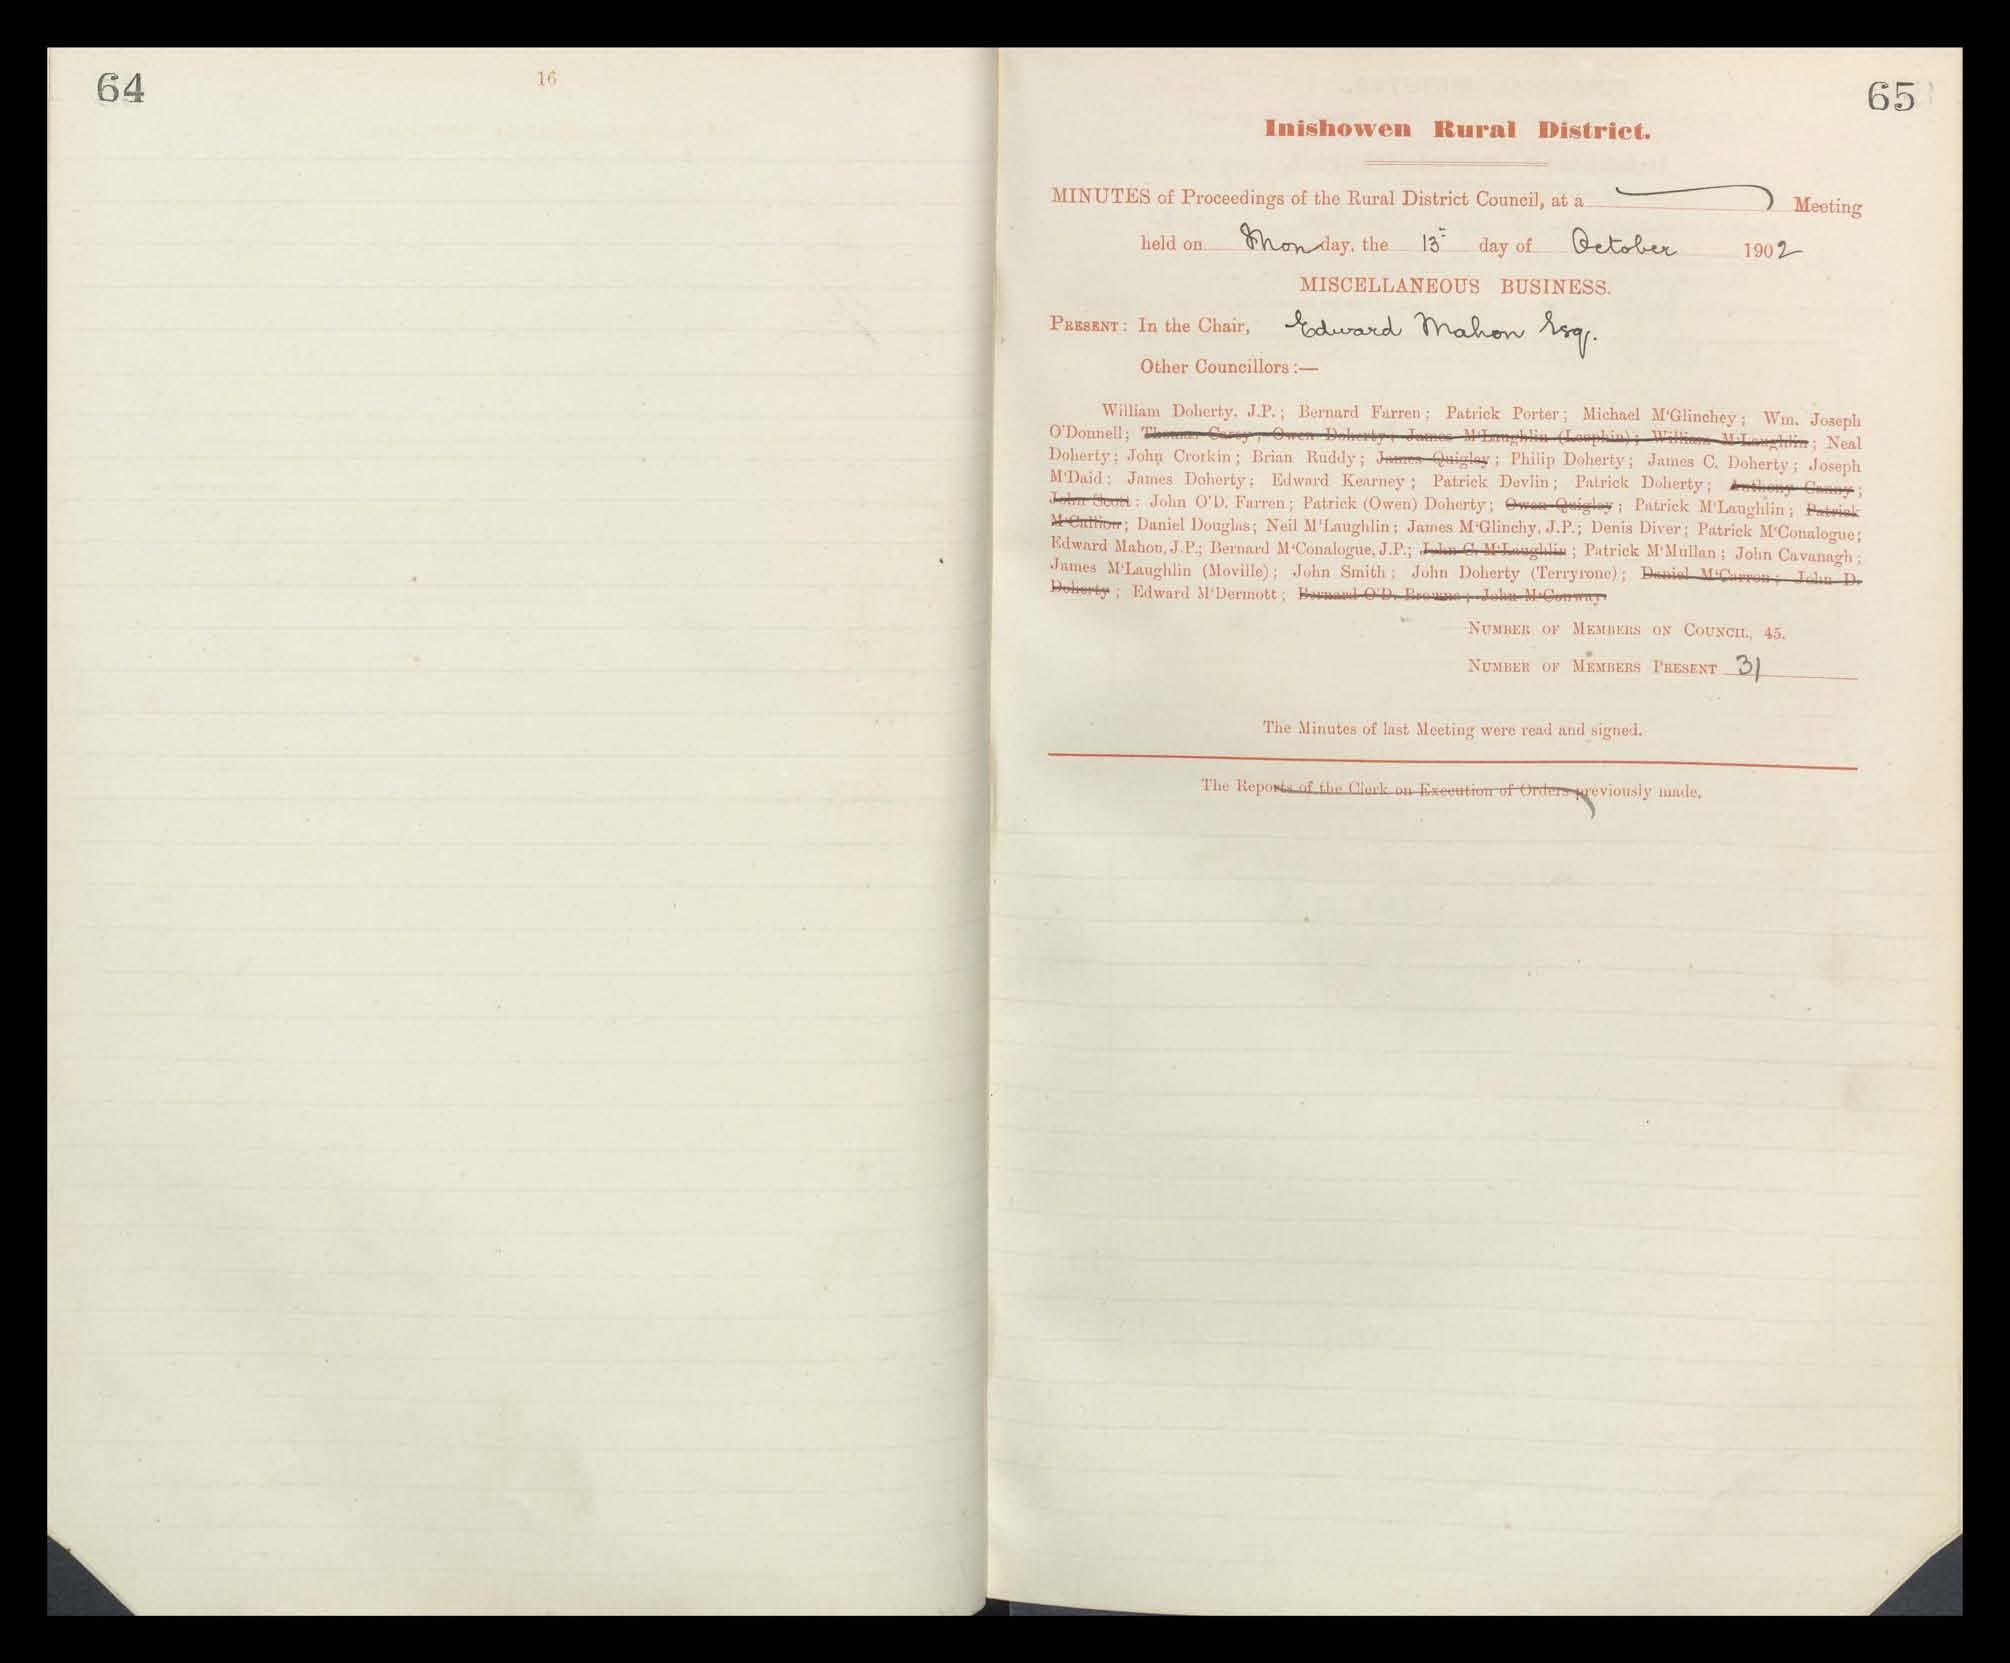 64
16
65
Inishowen Rural District.
MINUTES of Proceedings of the Rural District Council, at a Meeting
held on Monday, the 13th day of October 1902
MISCELLANEOUS BUSINESS.
PRESENT: In the Chair, Edward Mahon Esq.
Other Councillors:—
William Doherty, J.P.; Bernard Farren; Patrick Porter; Michael M'Glinchey; Wm. Joseph
O'Donnell; Thomas Casey; Owen Doherty; James M'Laughlin (Leophin); William M'Laughlin; Neal
Doherty; John Crorkin; Brian Ruddy; James Quigley; Philip Doherty; James C. Doherty; Joseph
M'Daid; James Doherty; Edward Kearney; Patrick Devlin; Patrick Doherty; Anthony Canny;
John Scott; John O'D. Farren; Patrick (Owen) Doherty; Owen Quigley; Patrick M'Laughlin; Patrick
M'Callion; Daniel Douglas; Neil M'Laughlin; James M'Glinchy, J.P.; Denis Diver; Patrick M'Conalogue;
Edward Mahon, J.P.; Bernard M'Conalogue, J.P.; John C. M'Laughlin; Patrick M'Mullan; John Cavanagh;
James M'Laughlin (Moville); John Smith; John Doherty (Terryrone); Daniel M'Carron; John D.
Doherty; Edward M'Dermott; Bernard O'D. Browne; John M'Conway.
NUMBER OF MEMBERS ON COUNCIL, 45.
NUMBER OF MEMBERS PRESENT 31
The Minutes of last Meeting were read and signed.
The Reports of the Clerk on Execution of Orders previously made.